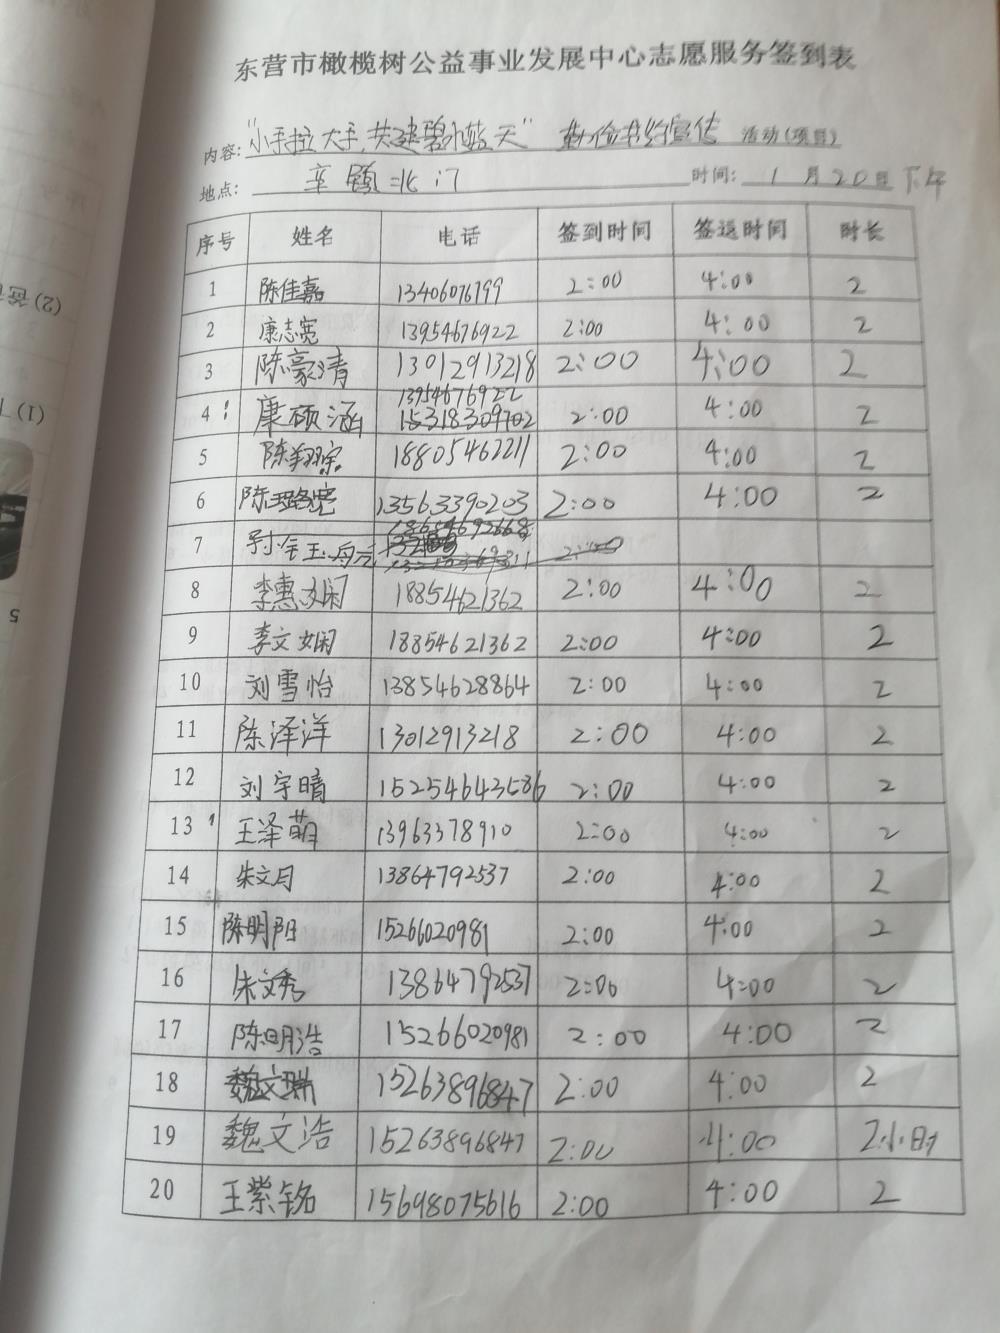 东营市橄榄树公益事业发展中心志愿服务签到表
内容: "小手拉大手,共建碧水蓝天" 宣传 活动(项目)
地点: 辛镇北门 时间: 1月20日下午
序号 姓名 电话 签到时间 签退时间 时长
1 陈佳嘉 13406076799 2:00 4:00 2
2 康志宽 13954676922 2:00 4:00 2
3 陈豪清 13012913218 2:00 4:00 2
13954676922
4 康硕涵 15318309702 2:00 4:00 2
5 陈翔宗 18805462211 2:00 4:00 2
6 陈璐宽 13563390203 2:00 4:00 2
7
8 李惠娴 18854621362 2:00 4:00 2
9 李文娴 18854621362 2:00 4:00 2
10 刘雪怡 13854628864 2:00 4:00 2
11 陈泽洋 13012913218 2:00 4:00 2
12 刘宇晴 2:00 4:00 2
13 王泽萌 13963378910 2:00 4:00 2
14 朱文月 13864792537 2:00 4:00 2
15 陈明阳 15266020981 2:00 4:00 2
16 朱文秀 13864792537 2:00 4:00 2
17 陈明浩 15266020981 2:00 4:00 2
18 魏文瑞 15263896847 2:00 4:00 2
19 魏文浩 15263896847 2:00 4:00 2小时
20 王紫铭 15698075616 2:00 4:00 2
(2)
(1)
5